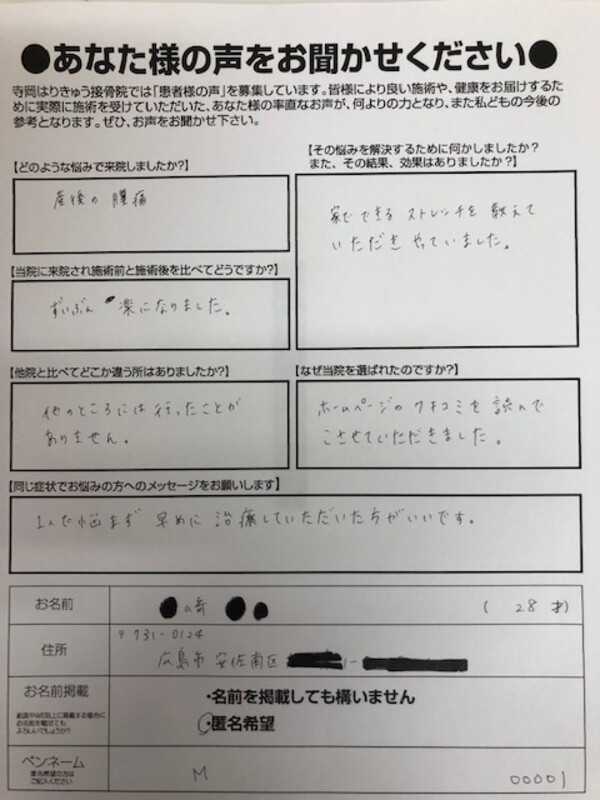 ●あなた様の声をお聞かせください●
寺岡はりきゅう接骨院では「患者様の声」を募集しています。皆様により良い施術や、健康をお届けするた
めに実際に施術を受けていただいた、あなた様の率直なお声が、何よりの力となり、また私どもの今後の
参考となります。ぜひ、お声をお聞かせ下さい。
【どのような悩みで来院しましたか?】
産後の腰痛
【その悩みを解決するために何かしましたか?
また、その結果、効果はありましたか?】
家でできるストレッチを教えて
いただきやっていました。
【当院に来院され施術前と施術後を比べてどうですか?】
ずいぶん 楽になりました。
【他院と比べてどこか違う所はありましたか?】
他のところには行ったことが
ありません。
【なぜ当院を選ばれたのですか?】
ホームページのクチコミを読んで
こさせていただきました。
【同じ症状でお悩みの方へのメッセージをお願いします】
1人で悩まず 早めに 治療していただいた方がいいです。
お名前
崎
( 28 才)
住所
〒731-0124
広島市 安佐南区 1-
お名前掲載
紙面やWEB上に掲載する場合に
お名前を載せても
よろしいでしょうか?
・名前を掲載しても構いません
・匿名希望
ペンネーム
匿名希望の方は
ご記入ください
M
00001